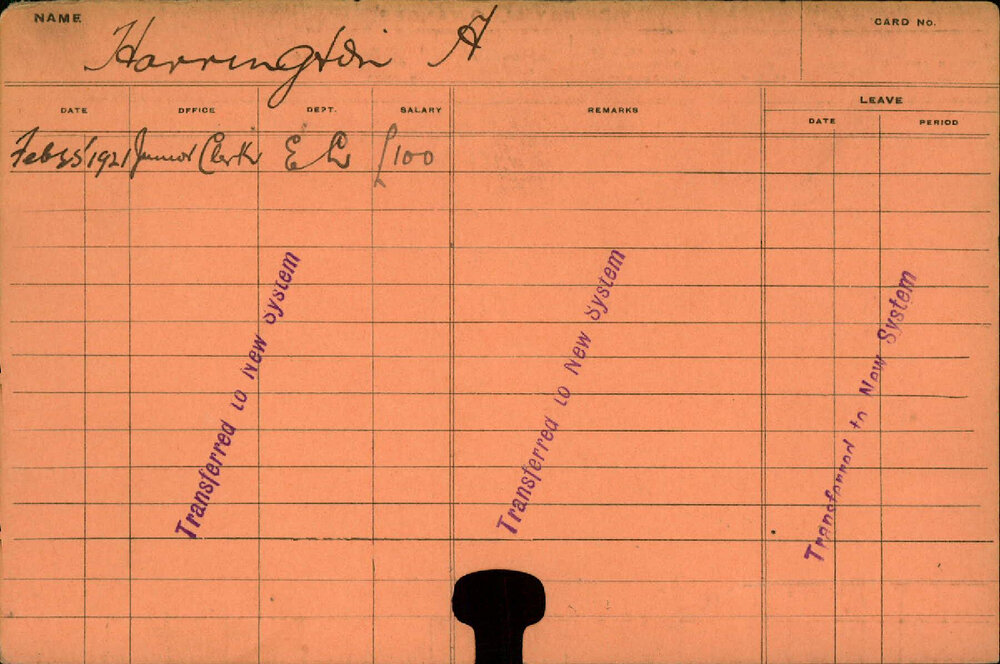 NAME
Harrington A
CARD No.
DATE OFFICE DEPT. SALARY REMARKS LEAVE
DATE PERIOD
Feb 1921 Junior Clerk E L £100
Transferred to New System
Transferred to New System
Transferred to New System